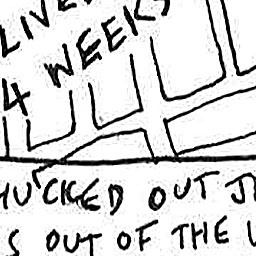 LIVE
4 WEEKS
HUCKED OUT
S OUT OF THE